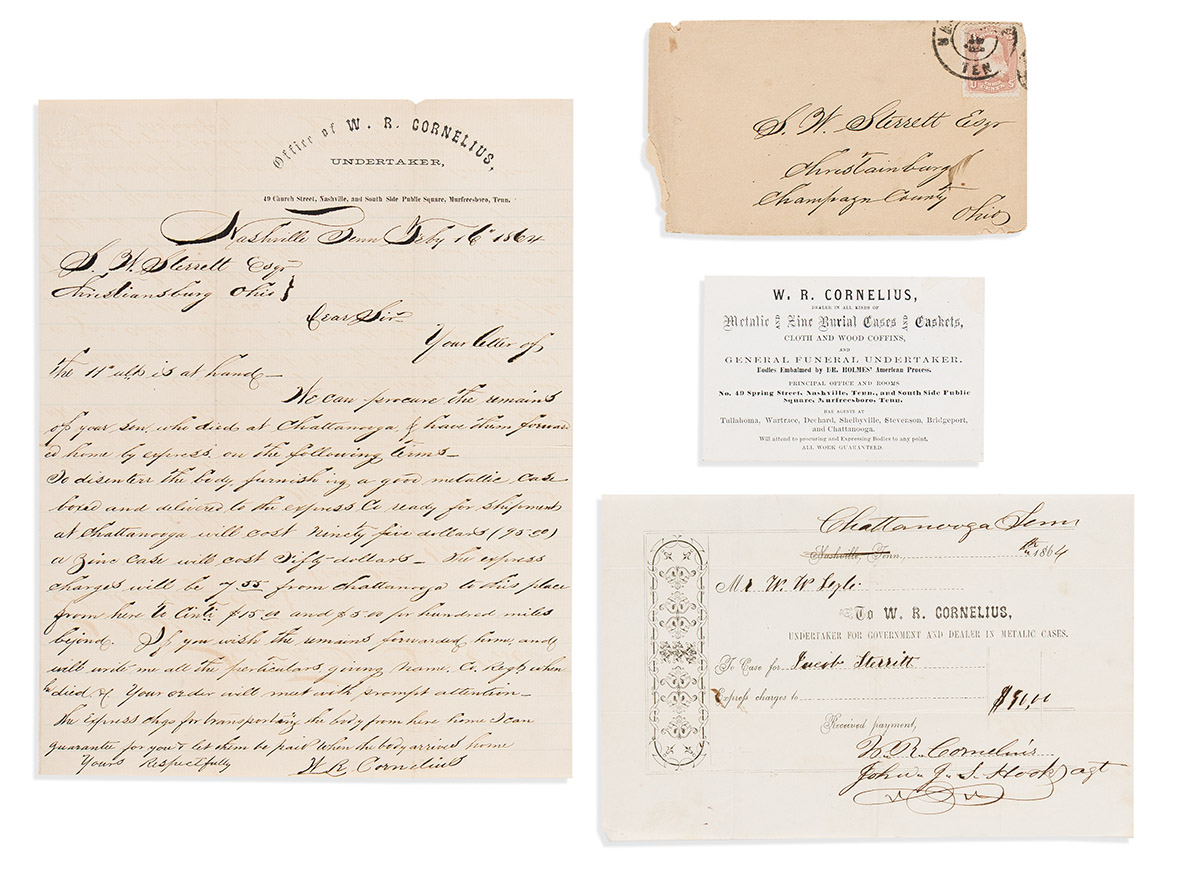 Office of W. R. CORNELIUS,
UNDERTAKER,
49 Church Street, Nashville, and South Side Public Square, Murfreesboro, Tenn.
Nashville Tenn Feby 16" 1864
S. W. Sterrett Esqr
Christiansburg Ohio
Dear Sir
Your letter of
the 11" ulto is at hand—
We can procure the remains
of your son, who died at Chattanooga, & have them forward
ed home by express, on the following terms—
To disenterr the body, furnishing a good metallic case
boxed and delivered to the express Co ready for shipment
at Chattanooga will cost Ninety five dollars (95.00)
a Zinc case will cost Fifty dollars— The express
charges will be 7 55 from Chattanooga to this place
from here to Cinti $15.00 and $5.00 per hundred miles
bejond. If you wish the remains forwarded home, and
will write me all the particulars giving name, Co. Regt, when
he died, &c Your order will met with prompt attention—
The express chgs for transporting the body from here home I can
guarantee for you & let them be paid when the body arrives home
Yours Respectfully
W R Cornelius
TEN
S. W. Sterrett Esqr
Christainburg
Champagn County
Ohio
W. R. CORNELIUS,
DEALER IN ALL KINDS OF
Metalic AND Zinc Burial Cases AND Caskets,
CLOTH AND WOOD COFFINS,
AND
GENERAL FUNERAL UNDERTAKER.
Bodies Embalmed by DR. HOLMES' American Process.
PRINCIPAL OFFICE AND ROOMS
No. 49 Spring Street, Nashville, Tenn., and South Side Public
Square, Murfreesboro, Tenn.
HAS AGENTS AT
Tullahoma, Wartrace, Dechard, Shelbyville, Stevenson, Bridgeport,
and Chattanooga.
Will attend to procuring and Expressing Bodies to any point,
ALL WORK GUARANTEED.
Chattanooga Tenn
Nashville, Tenn, 1864
Mr. W. W.
To W. R. CORNELIUS,
UNDERTAKER FOR GOVERNMENT AND DEALER IN METALIC CASES.
To Case for Jacob Sterritt
Express charges to $90,00
Received payment,
W. R. Cornelius
John J. S. Hook agt